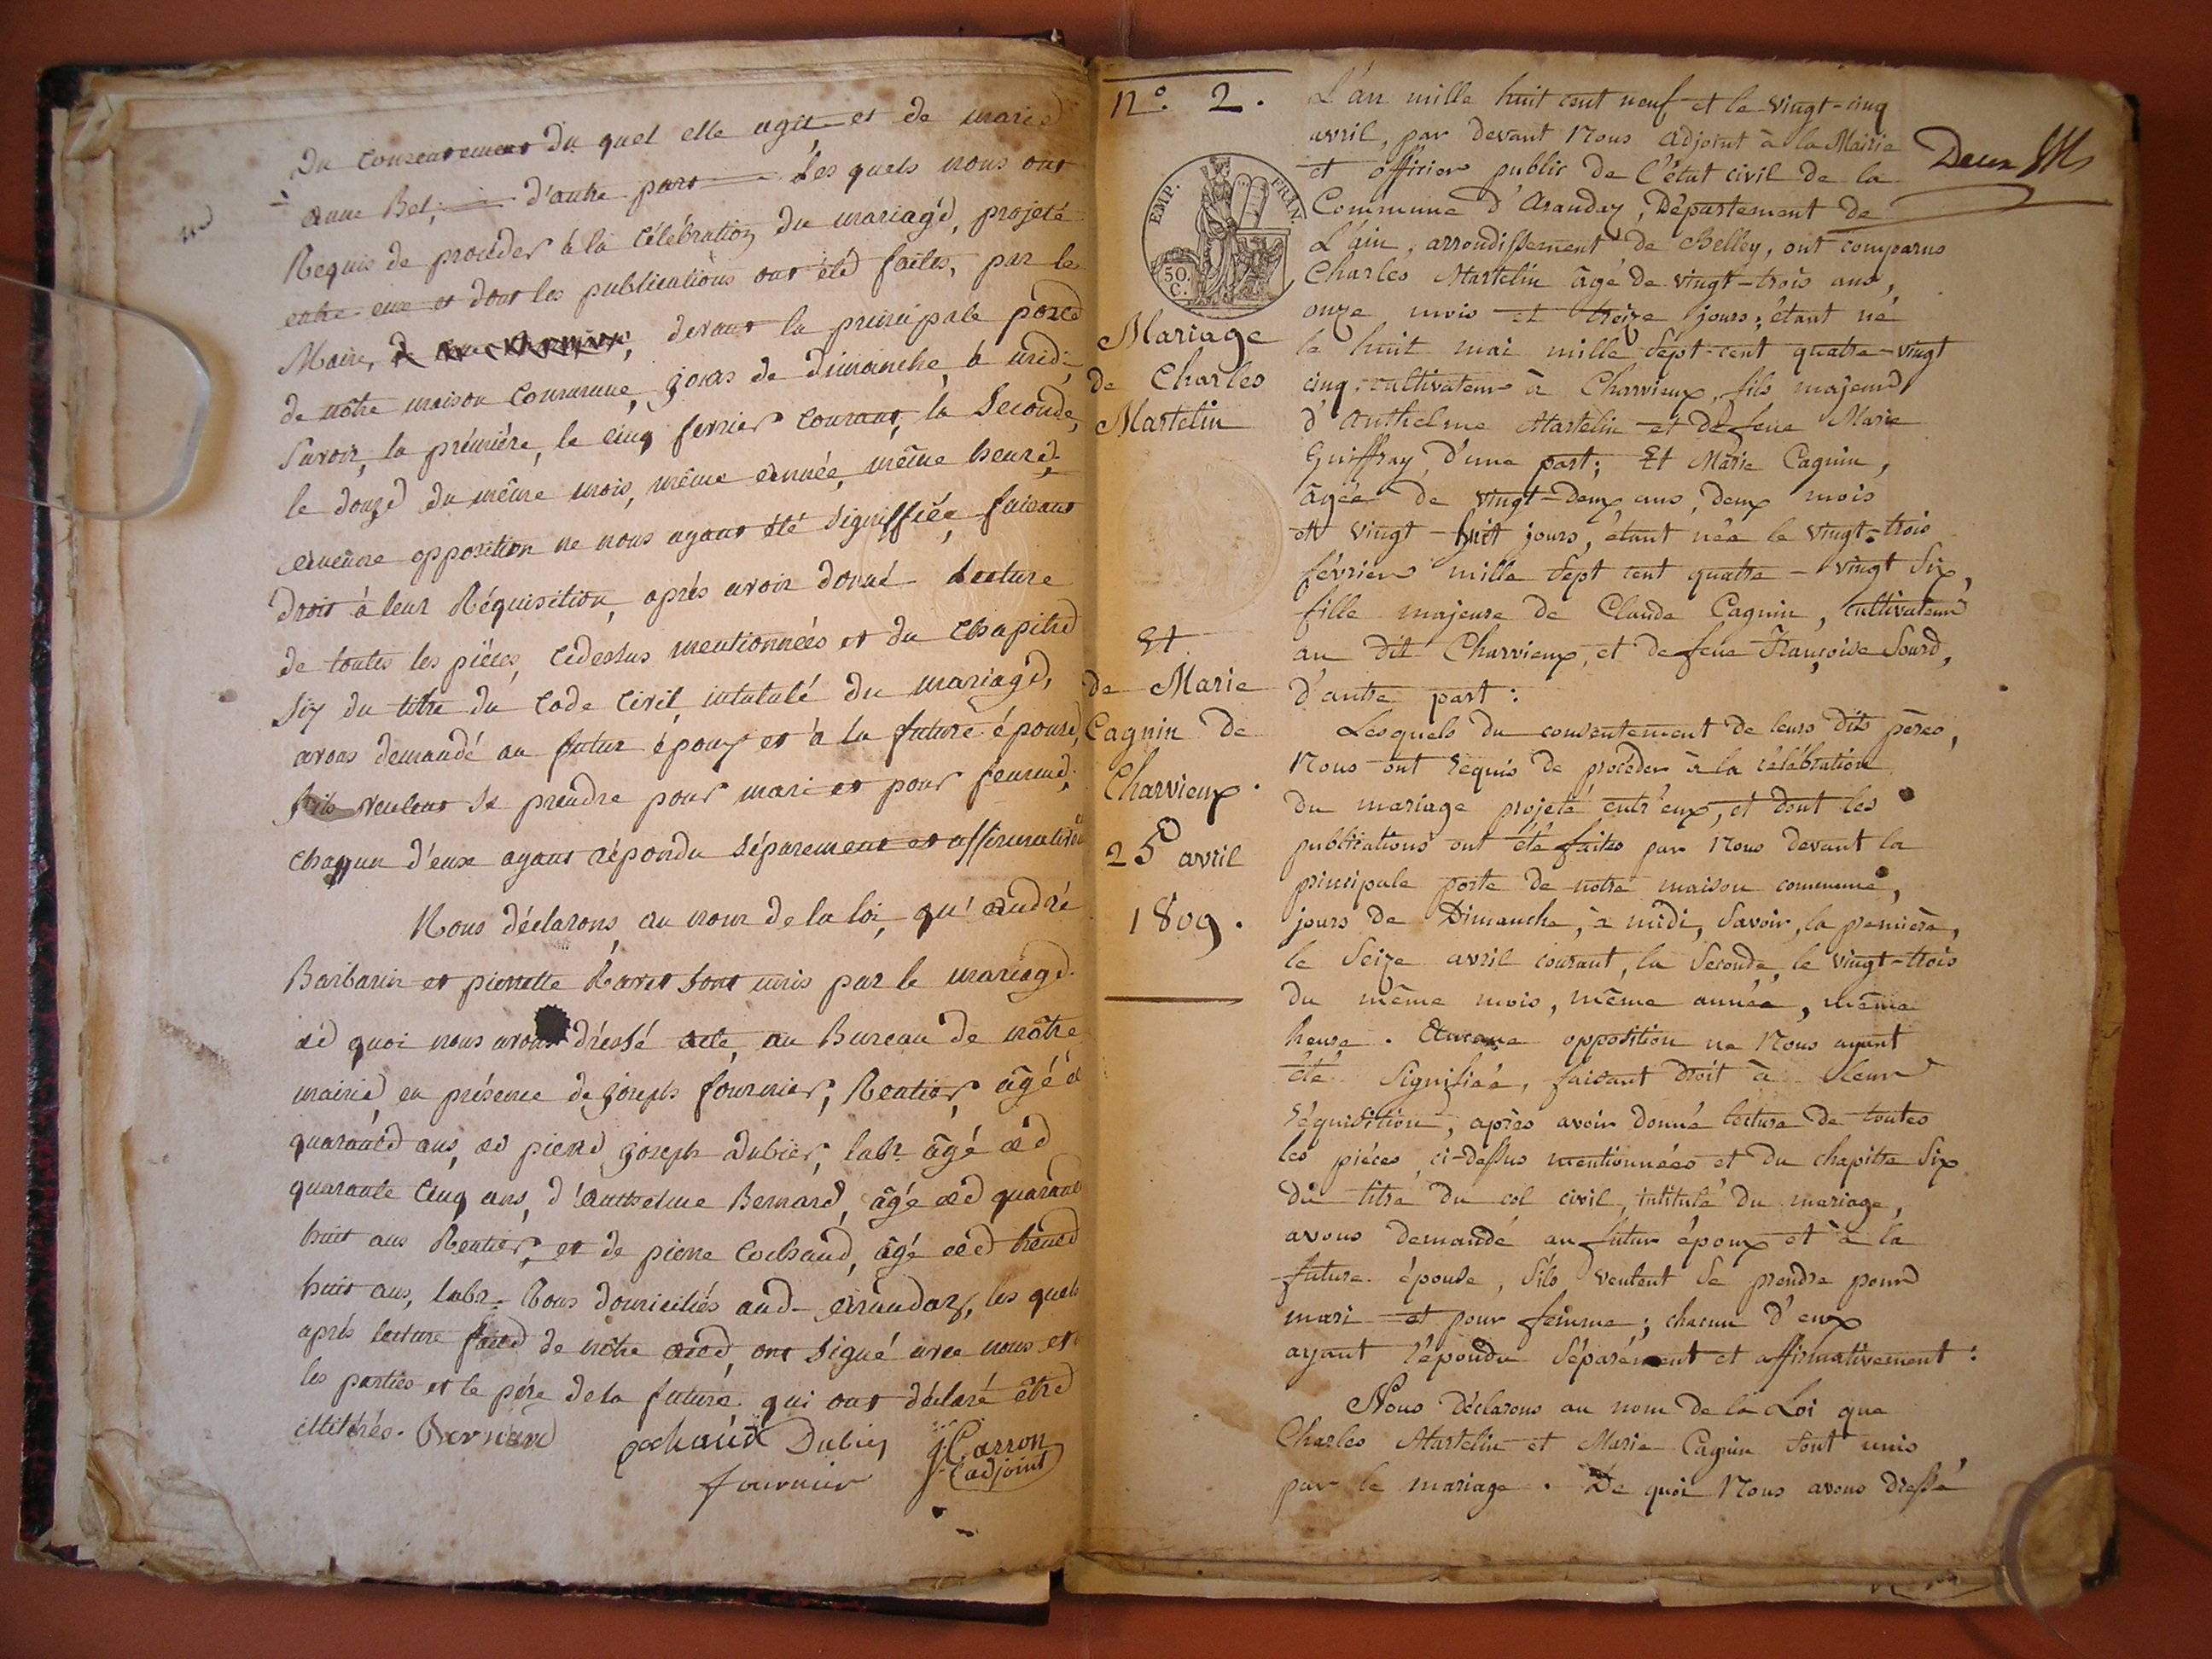 Du Consentement du quel elle agit et de marie
anne Bel; d'autre part Les quels nous ont
Requis de procéder à la célébration du mariage, projeté
entre eux et dont les publications ont été faites, par le
Maire, devant la principale porte
de nôtre maison Commune, jours de dimanche, à midi,
Savoir, la prémière, le cinq fevrier Courant, la Seconde,
le douze du même mois, même année, même heure,
aucune opposition ne nous ayant été Signiffiée, faisant
droit à leur Réquisition, aprés avoir donné Lecture
de toutes les piéces, cidessus mentionnées et du Chapitre
Six du titre du Code Civil, intutulé du mariage,
avons demandé au futur époux et à la future épouse,
s'ils veulent Se prendre pour mari et pour femme;
chaqun d'eux ayant répondu Séparement et affirmativem
Nous déclarons, au nom de la loi, qu'andré
Barbarin et pierrette Ravet Sont unis par le mariage.
de quoi nous avons dréssé acte, au Bureau de nôtre
mairie, en présence de joseph fournier, Rentier, âgé de
quarante ans, de pierre joseph Dubier, labr. âgé de
quarante Cinq ans, d'Anthelme Bernard, âgé de quarante
huit ans Rentier, et de pierre Cochaud, âgé de trente
huit ans, labr. Tous domiciliés aud. arandaz, les quels
aprés lecture faite de nôtre acte, ont Signé avec nous et
les parties et le pére de la future qui ont déclaré être
illitérés. Bernard Cochaud Dubier J. Carron
fournier adjoint
n°. 2.
EMP. FRAN.
50
C.
Mariage
de Charles
Martelin
Et
de Marie
Cagnin de
Charvieux.
25 avril
1809.
Deux
L'an mille huit cent neuf et le vingt-cinq
avril, par devant Nous adjoint à la Mairie
et officier public de l'état civil de la
Commune d'Aranday, Département de
L'ain, arrondissement de Belley, ont comparus
Charles Martelin âgé de vingt-trois ans,
onze mois et treize jours, étant né
le huit mai mille Sept-cent quatre-vingt
cinq, cultivateur à Charvieux, fils majeur
d'Anthelme Martelin et de feue Marie
Guiffray, d'une part; Et Marie Cagnin,
âgée de vingt-deux ans, deux mois
et vingt-huit jours, étant née le vingt-trois
février mille Sept cent quatre-vingt Six,
fille majeure de Claude Cagnin, cultivateur
au dit Charvieux, et de feue Françoise Sourd,
d'autre part:
Lesquels du consentement de leurs dits pères,
Nous ont Réquis de procéder à la célébration
du mariage projeté entr'eux, et dont les
publications ont été faites par Nous devant la
principale porte de notre maison commune,
jours de Dimanche, à midi, Savoir, la premiere,
le Seize avril courant, la Seconde, le vingt-trois
du même mois, même année, même
heure. Aucune opposition ne Nous ayant
été Signifiée, faisant droit à leur
Réquisition, après avoir donné lecture de toutes
les pièces, ci-dessus mentionnées et du chapitre Six
du titre du col civil, intitulé du mariage,
avons demandé au futur époux et à la
future épouse, s'ils veulent Se prendre pour
mari et pour femme; chacun d'eux
ayant répondu Séparément et affirmativement:
Nous déclarons au nom de la Loi que
Charles Martelin et Marie Cagnin Sont unis
par le mariage. De quoi Nous avons dressé